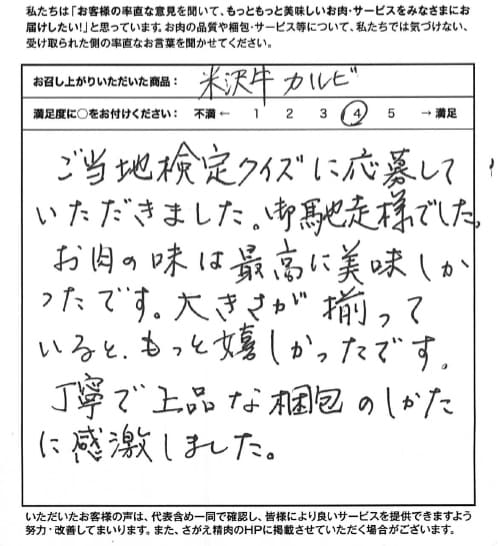 私たちは「お客様の率直な意見を聞いて、もっともっと美味しいお肉・サービスをみなさまにお
届けしたい!」と思っています。お肉の品質や梱包・サービス等について、私たちでは気づけない、
受け取られた側の率直なお言葉を聞かせてください。
お召し上がりいただいた商品： 米沢牛カルビ
満足度に○をお付けください： 不満 ← 1 2 3 4 5 → 満足
ご当地検定クイズに応募して
いただきました。御馳走様でした。
お肉の味は最高に美味しか
ったです。大きさが揃って
いると、もっと嬉しかったです。
丁寧で上品な梱包のしかた
に感激しました。
いただいたお客様の声は、代表含め一同で確認し、皆様により良いサービスを提供できますよう
努力・改善してまいります。また、さがえ精肉のHPに掲載させていただく場合がございます。